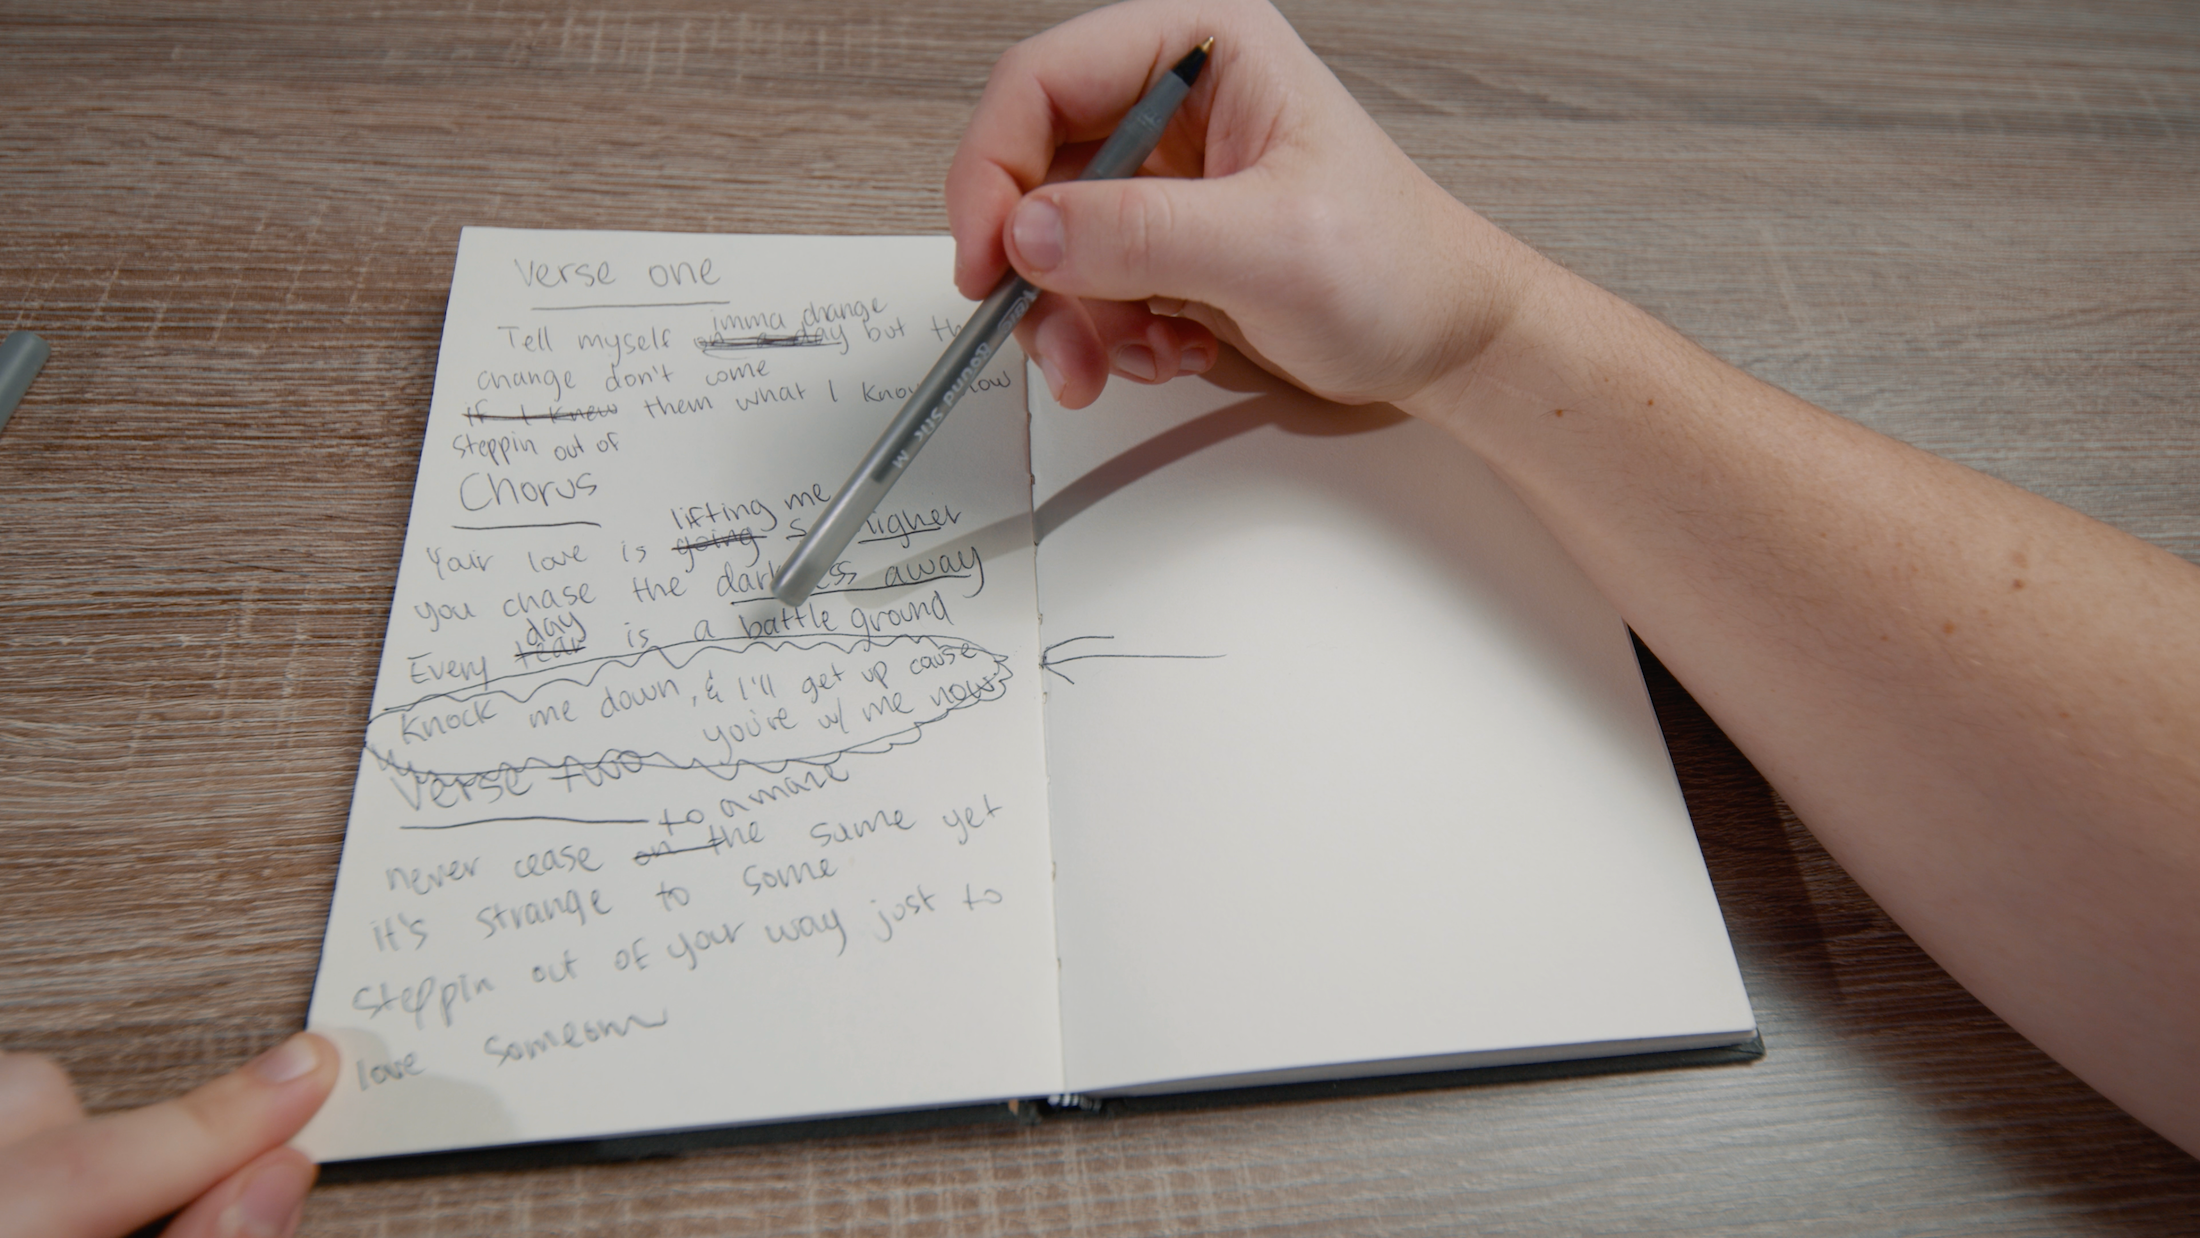 Verse one
imma change
Tell myself on a day but th
change don't come
if I knew them what I know now
steppin out of
Chorus
lifting me
Your love is going higher
you chase the darkness away
day
Every tear is a battle ground
Knock me down, & I'll get up cause
you're w/ me now
Verse two
to amaze
never cease on the same yet
it's strange to some
steppin out of your way just to
love someone
Round Stic M